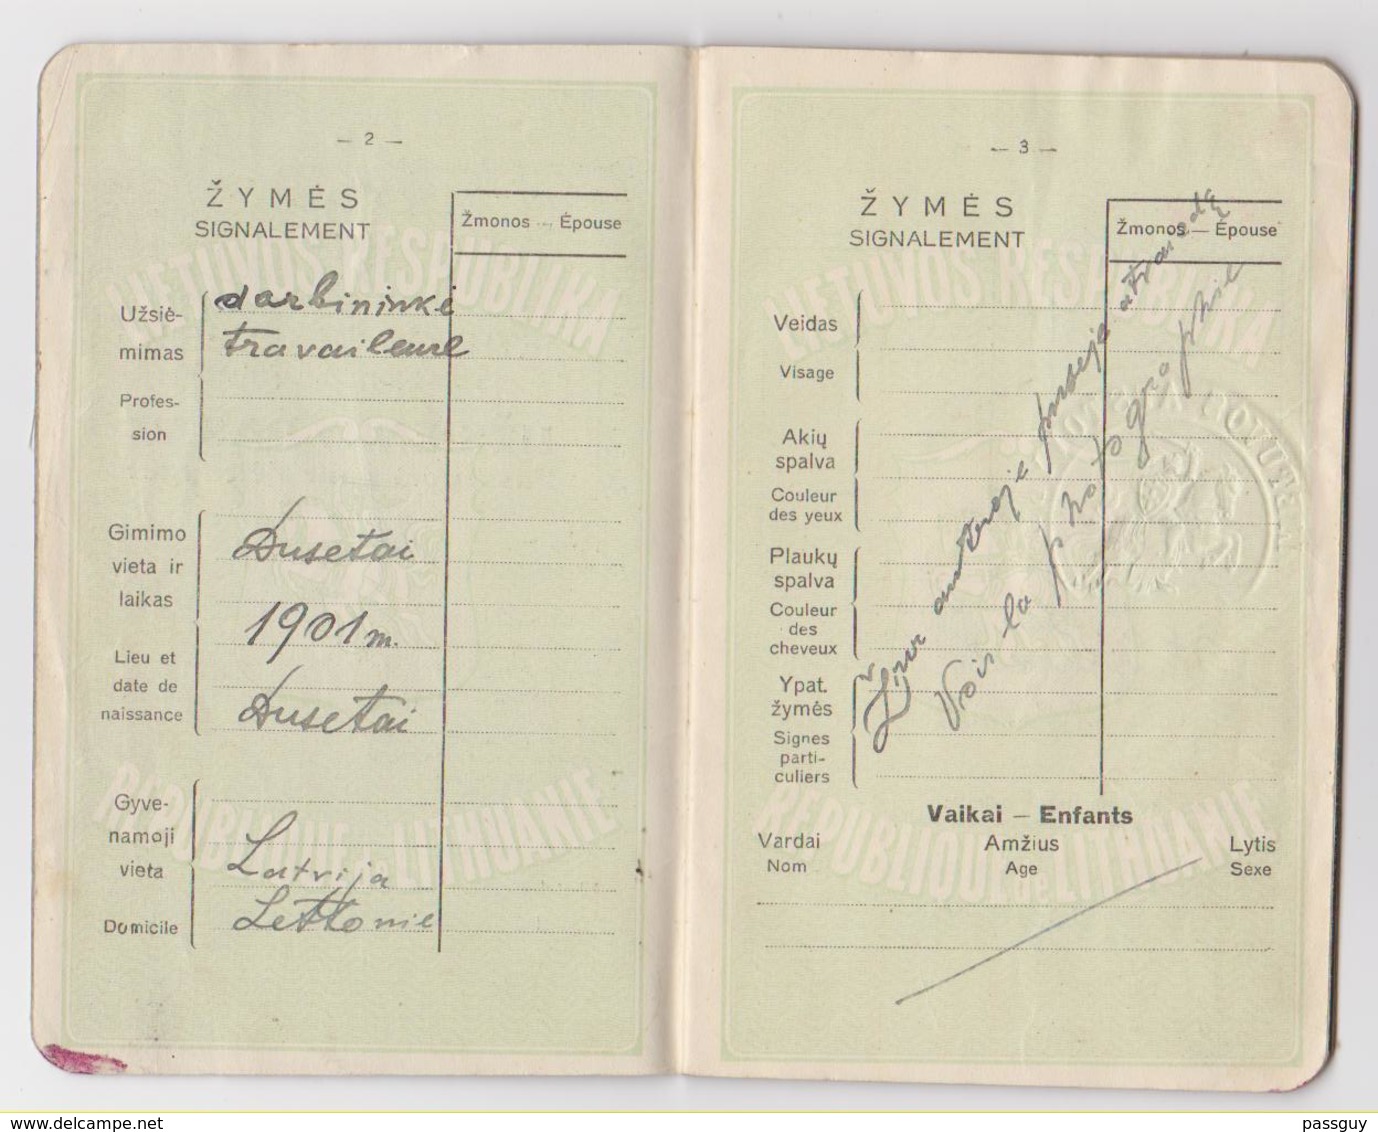 — 2 —
ŽYMĖS
SIGNALEMENT
Žmonos — Épouse
Užsiė-
mimas
Profes-
sion
darbininkė
travaileure
Gimimo
vieta ir
laikas
Lieu et
date de
naissance
Dusetai
1901 m.
Dusetai
Gyve-
namoji
vieta
Domicile
Latvija
Lettonie
LIETUVOS RESPUBLIKA
RÉPUBLIQUE de LITHUANIE
— 3 —
ŽYMĖS
SIGNALEMENT
Žmonos — Épouse
Veidas
Visage
Akių
spalva
Couleur
des yeux
Plaukų
spalva
Couleur
des
cheveux
Ypat.
žymės
Signes
parti-
culiers
Žiūr antroje pusėje
Voir la photographie
Vaikai — Enfants
Vardai Amžius Lytis
Nom Age Sexe
LIETUVOS RESPUBLIKA
RÉPUBLIQUE de LITHUANIE
www.delcampe.net
passguy